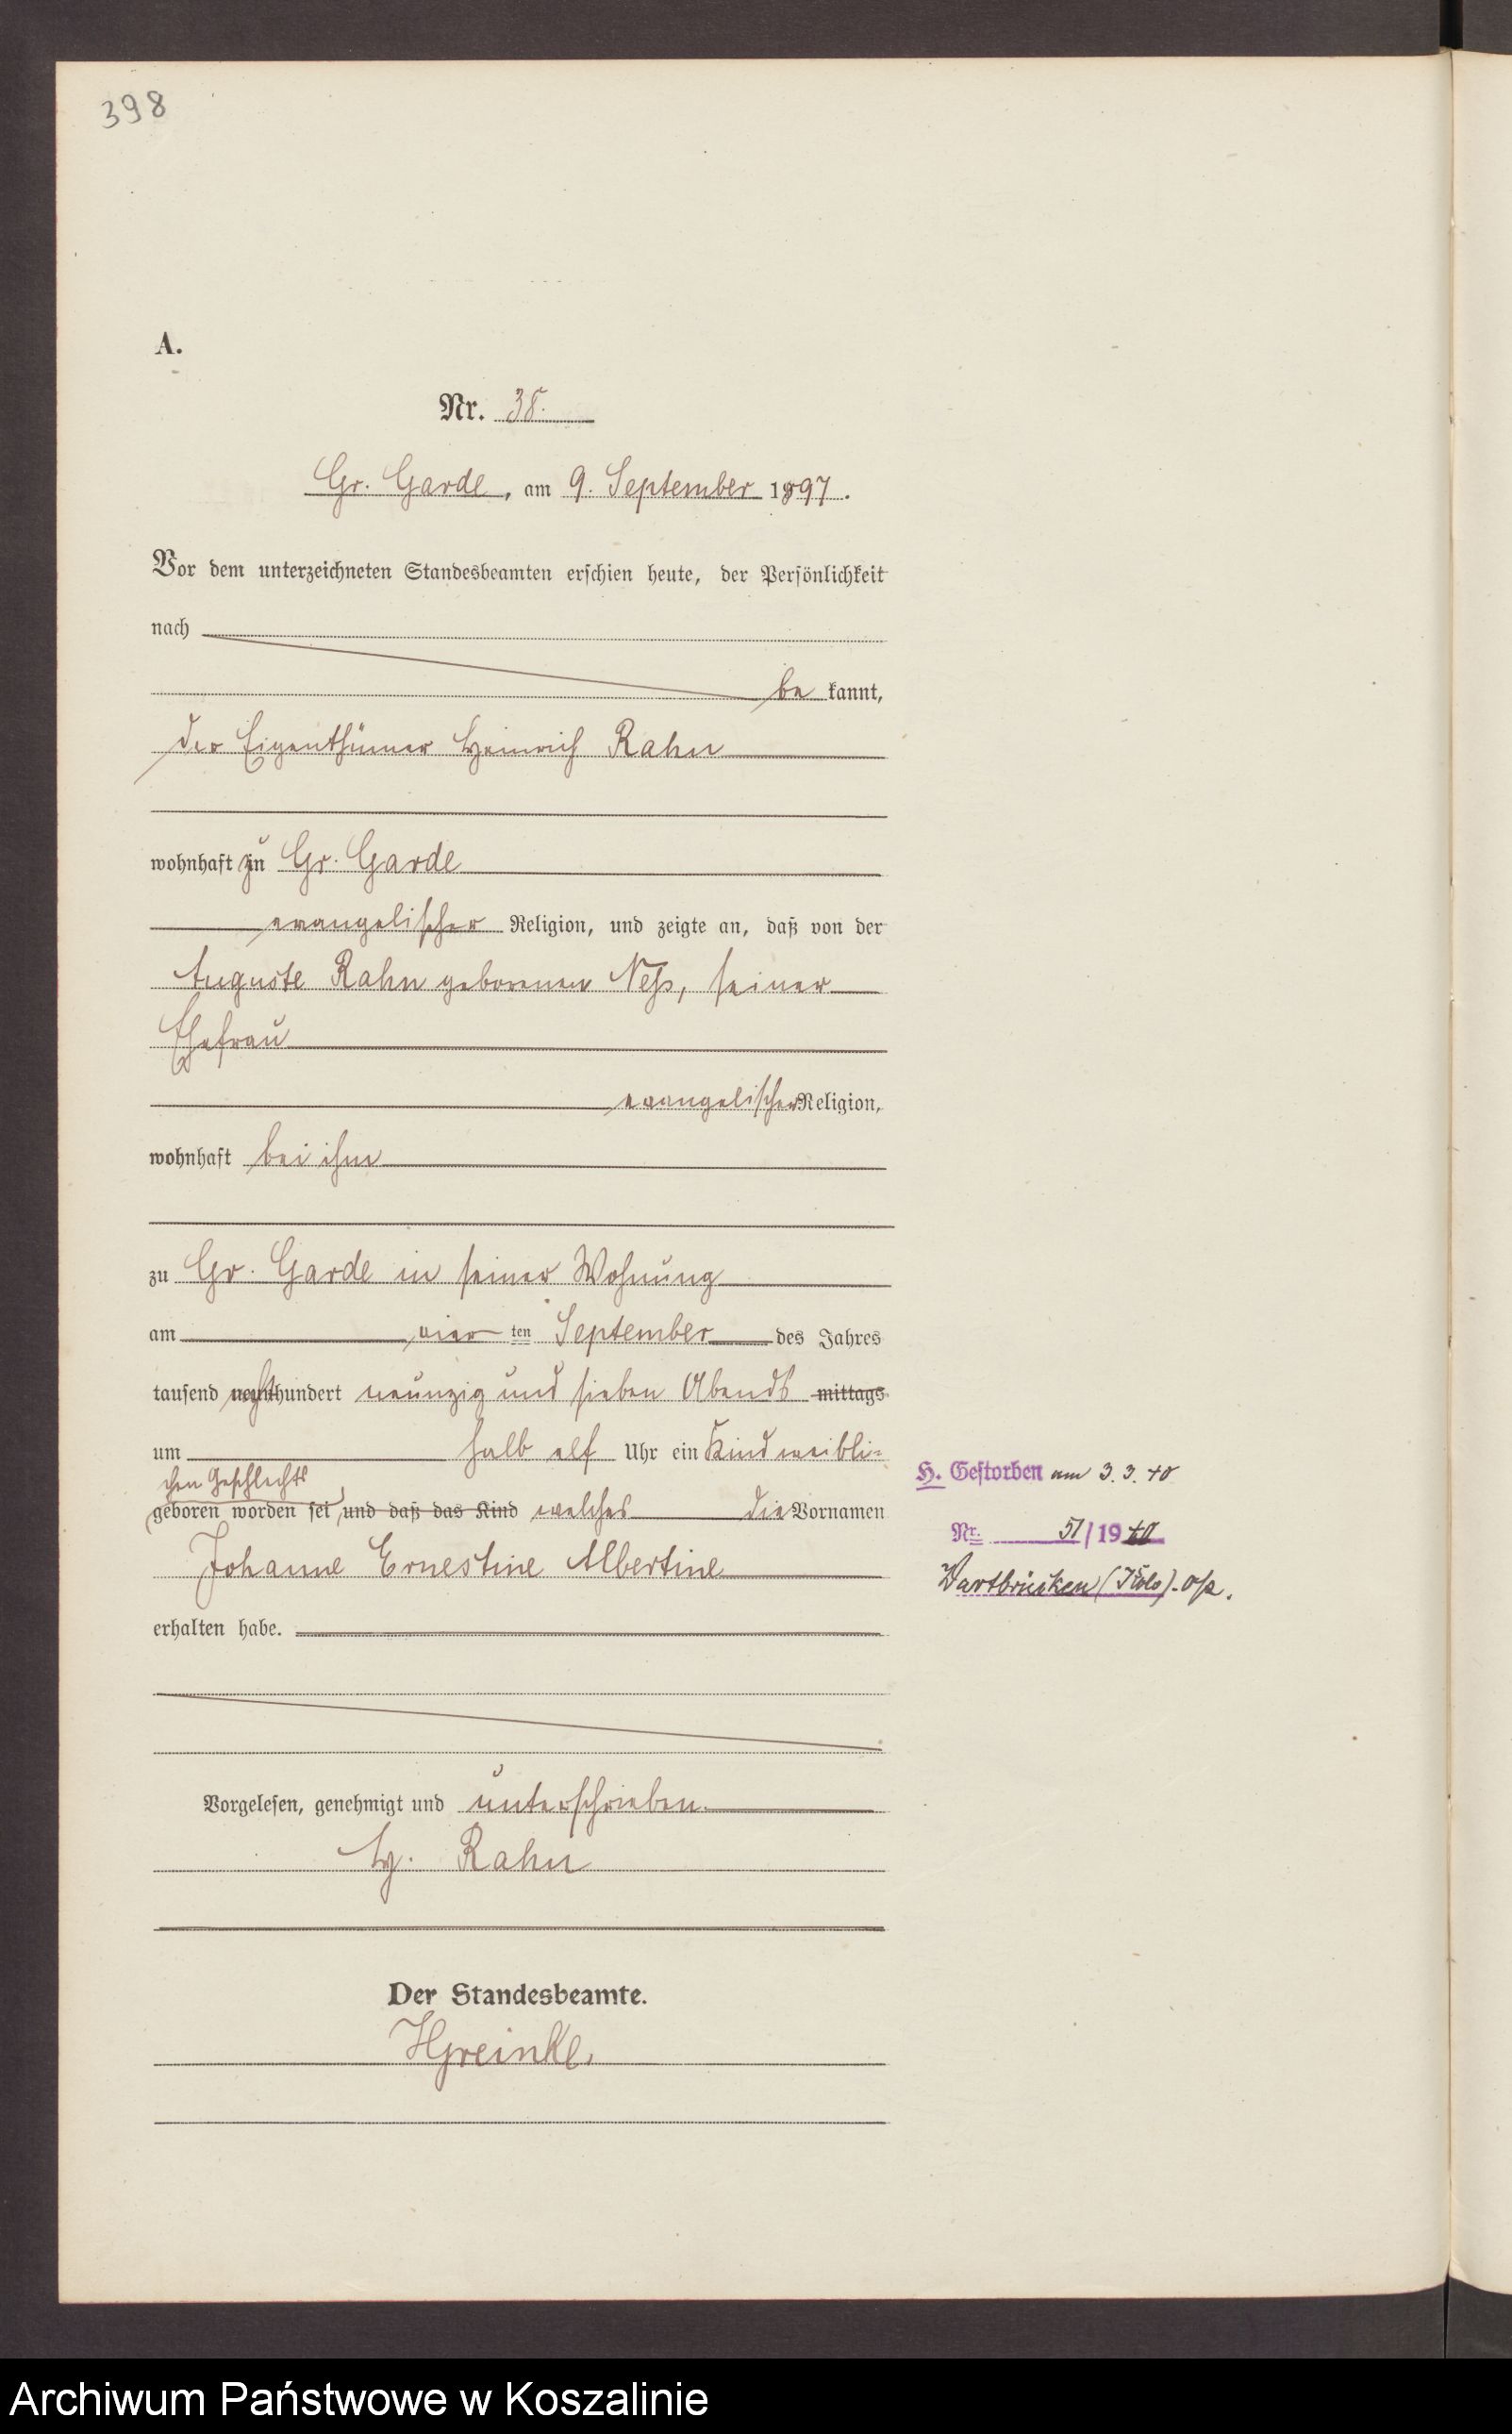 398
A.
Nr. 38.
Gr. Garde, am 9. September 1897.
Vor dem unterzeichneten Standesbeamten erschien heute, der Persönlichkeit
nach
be kannt,
der Eigenthümer Heinrich Rahn
wohnhaft zu Gr. Garde
evangelischer Religion, und zeigte an, daß von der
Auguste Rahn geborenen Neß, seiner
Ehefrau
evangelischer Religion,
wohnhaft bei ihm
zu Gr. Garde in seiner Wohnung
am vier ten September des Jahres
tausend achthundert neunzig und sieben Abends mittags
um halb elf Uhr ein Kind weibli-
chen Geschlechts
geboren worden sei, und daß das Kind welches die Vornamen
Johanne Ernestine Albertine
erhalten habe.
Vorgelesen, genehmigt und unterschrieben.
H. Rahn
Der Standesbeamte.
HGreinke.
H. Gestorben am 3.3.40
Nr. 51/1940
Wartbrücken
Archiwum Państwowe w Koszalinie